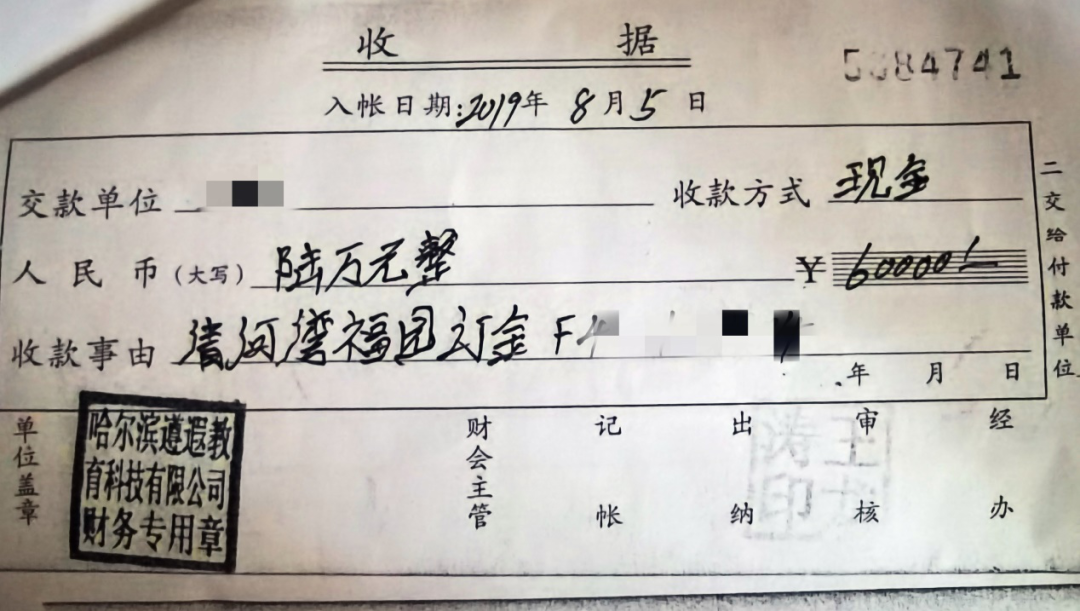 收 据
5084741
入帐日期:2019年 8月5日
交款单位
收款方式 现金
人民币(大写) 陆万元整 ¥ 60000/—
收款事由 清河湾福园订金 F4
年 月 日
二交给付款单位
单位盖章
哈尔滨遵遐教
育科技有限公司
财务专用章
财会主管
记帐
出纳
审核
经办